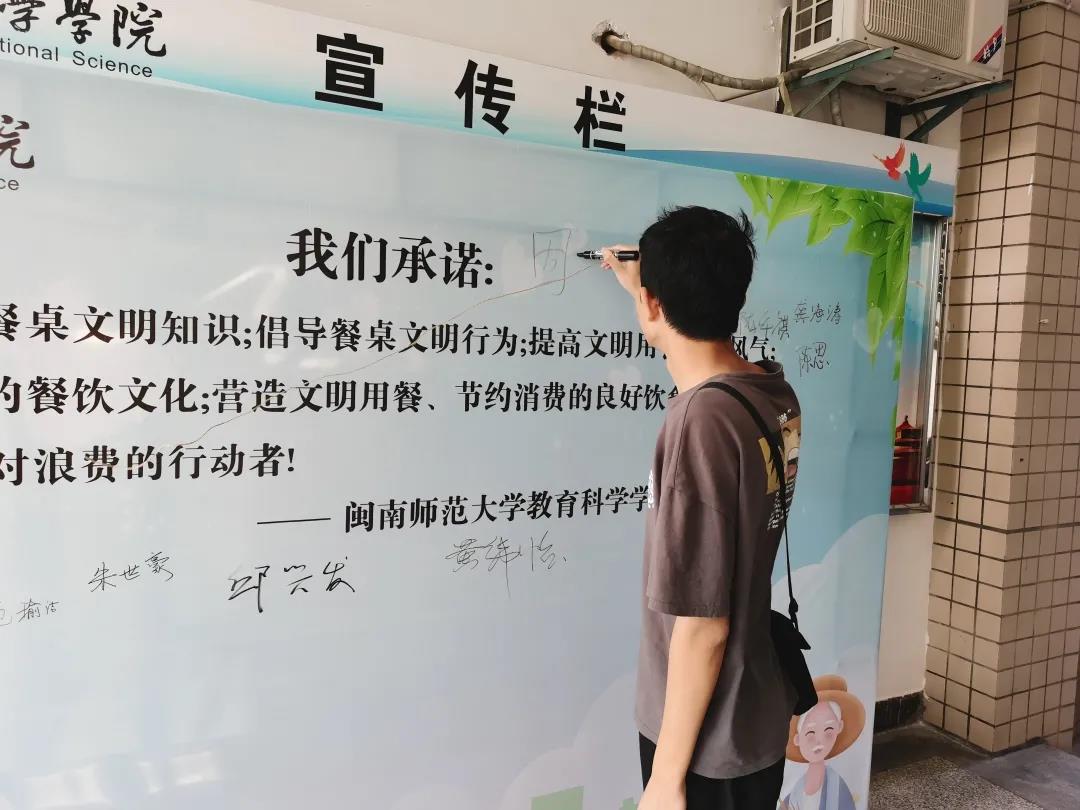 學學院
tional Science
宣传栏
院
ce
我们承诺:
餐桌文明知识;倡导餐桌文明行为;提高文明用
风气;
的餐饮文化;营造文明用餐、节约消费的良好饮食
对浪费的行动者!
—— 闽南师范大学教育科学学
周
龚海涛
陈思
朱世豪
邱兴发
黄纬怡
瑜洁